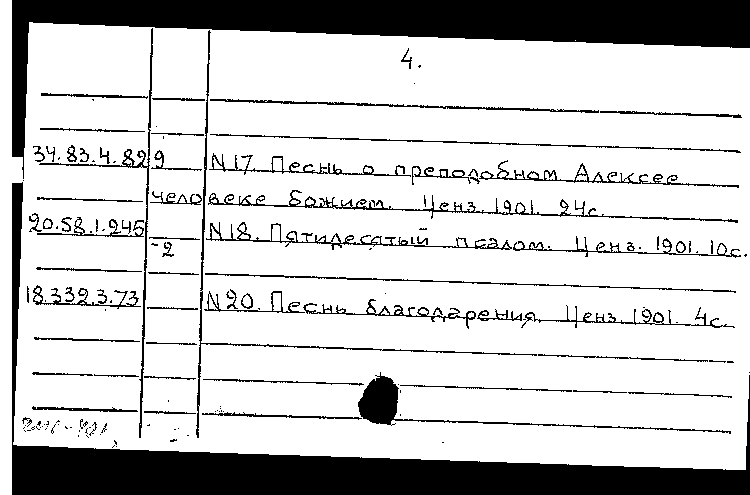 4.
34.83.4.829 N17. Песнь о преподобном Алексее
человеке божием. Ценз. 1901. 24с.
20.58.1.245 N18. Пятидесятый псалом. Ценз. 1901. 10с.
-2
18.332.3.73 N20. Песнь благодарения. Ценз. 1901. 4с.